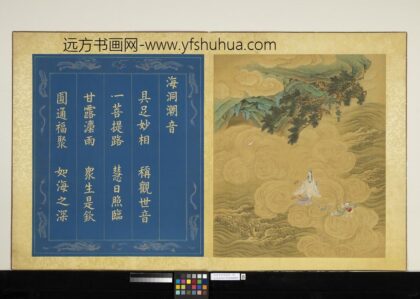 远方书画网-www.yfshuhua.com
海洞潮音
具足妙相 稱觀世音
一菩提路 慧日照臨
甘露灑雨 眾生是欽
圓通福聚 如海之深